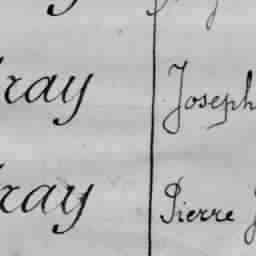 ray Joseph
ray Pierre